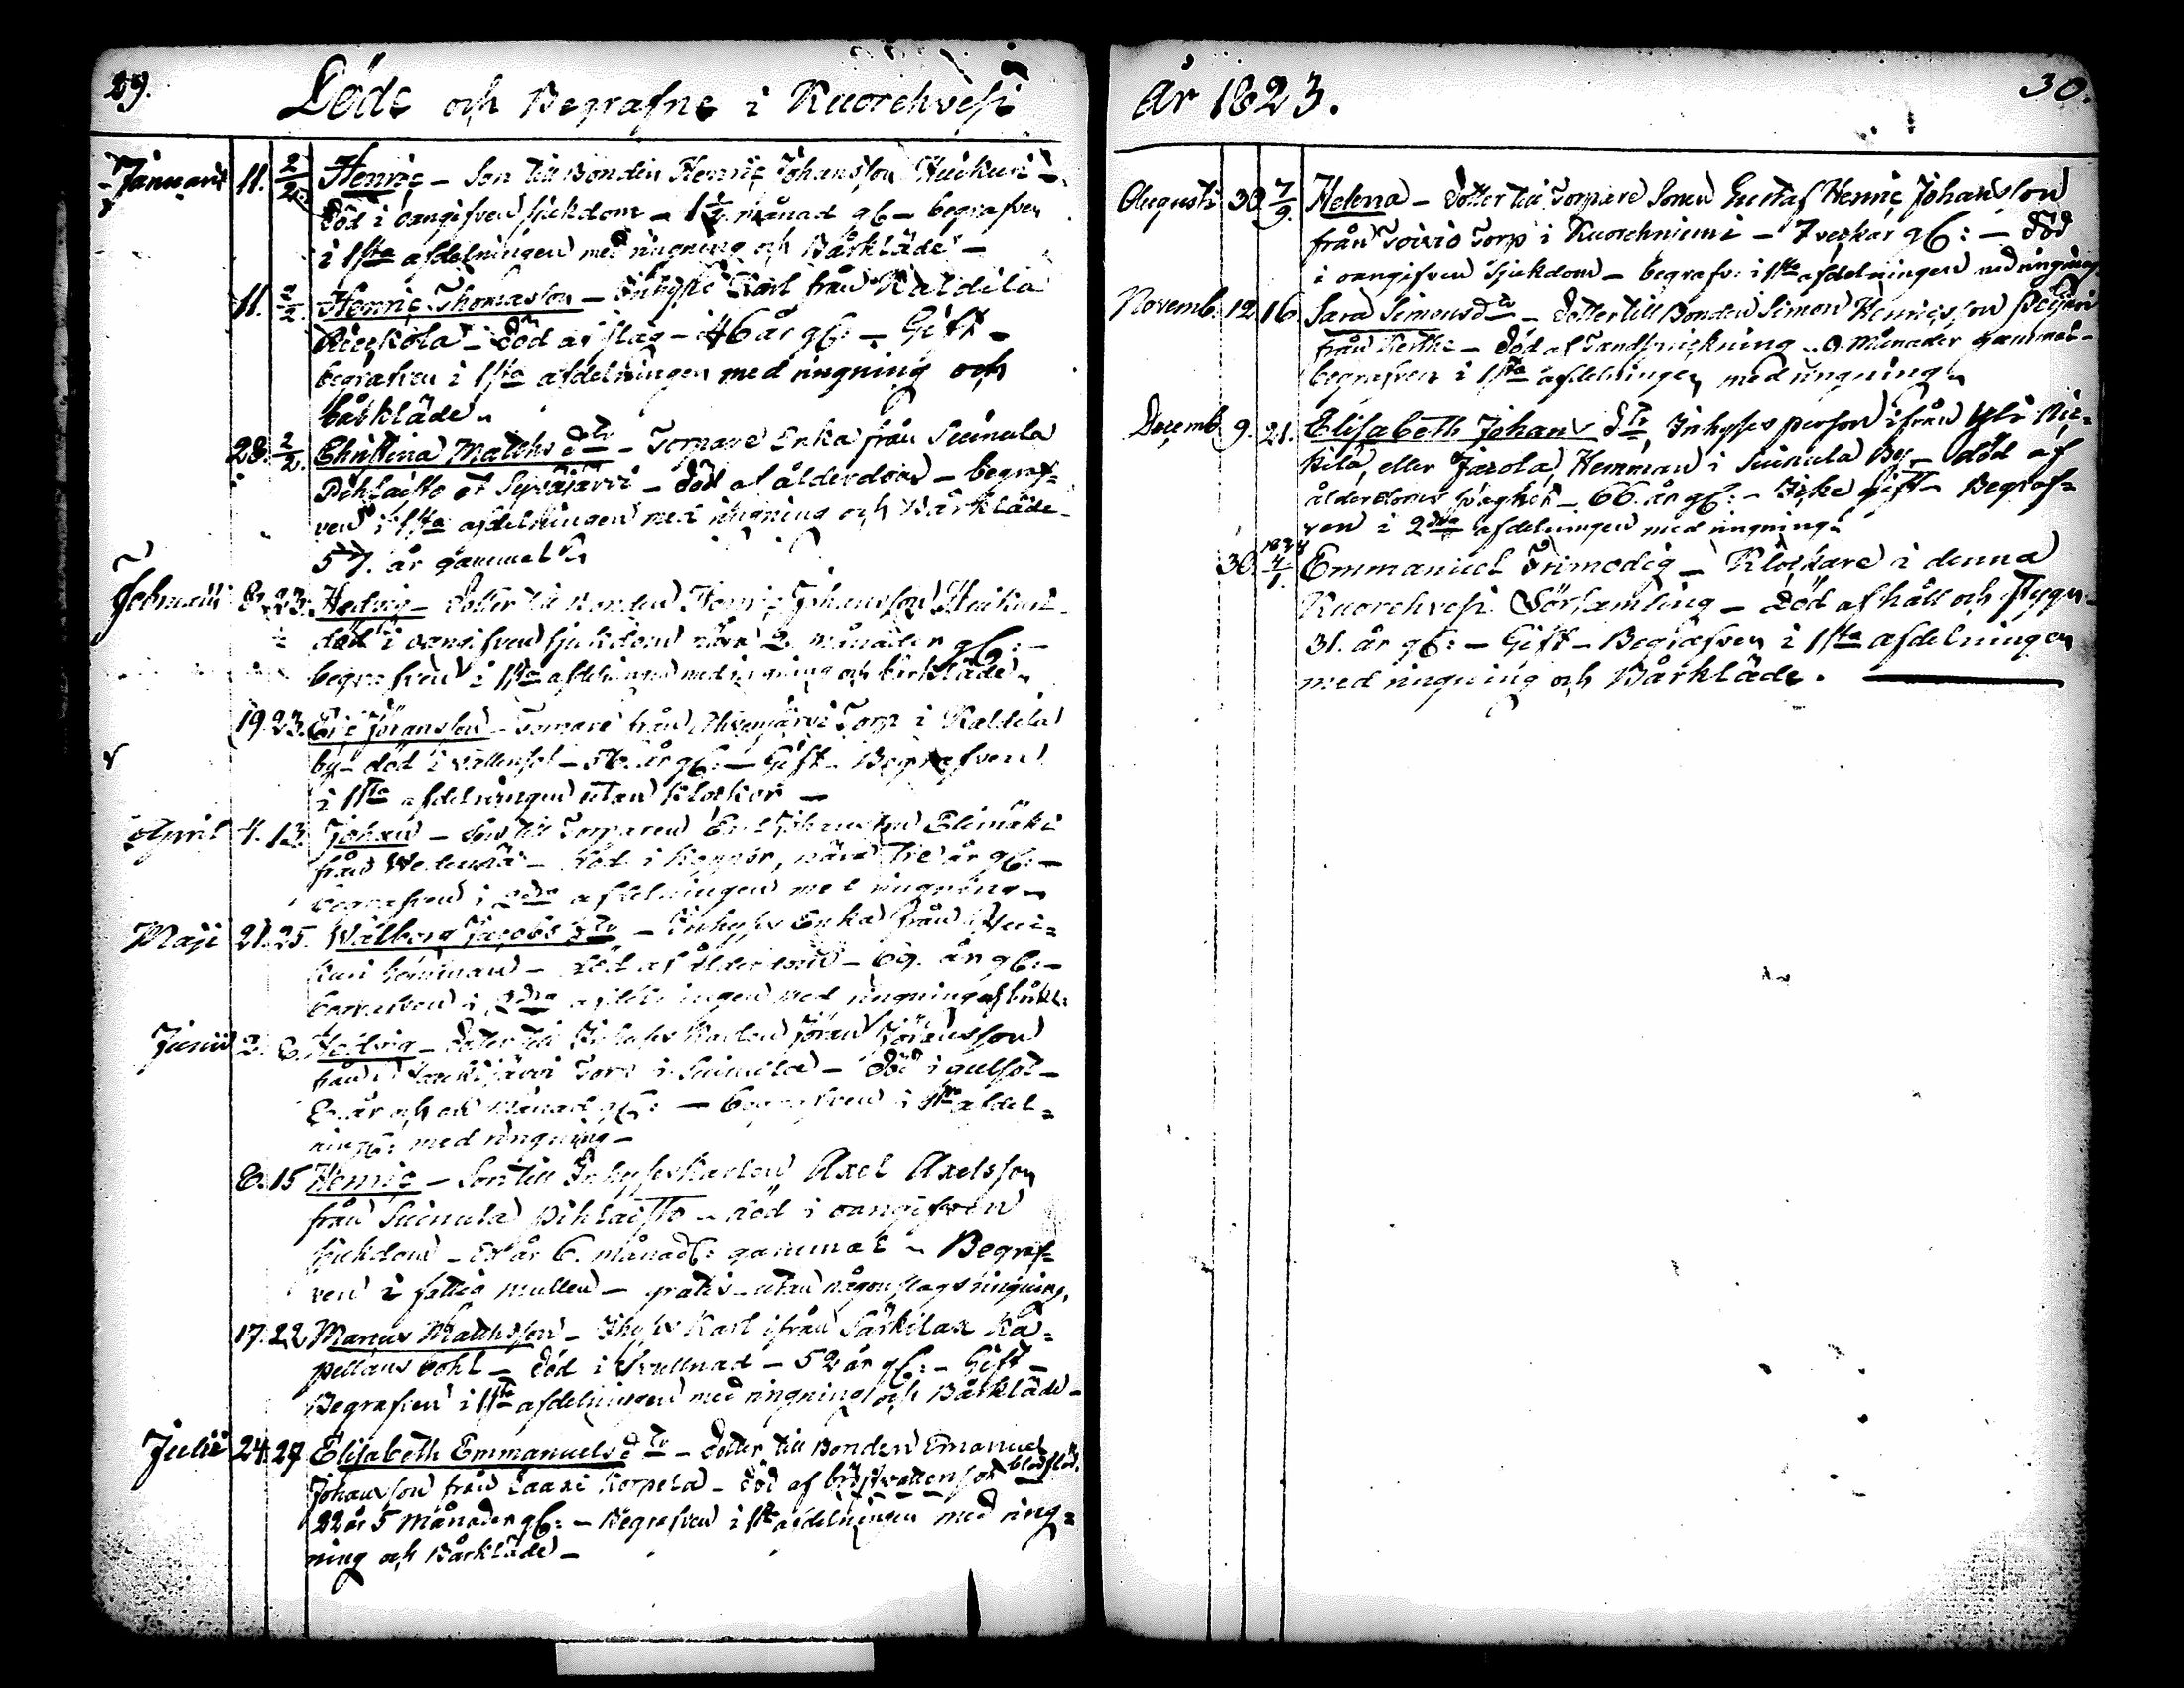 29.
Döde och Begrafne i Kuorehvesi
Januarii 11. 2/2. Henric - Son till Bonden Henric Johansson Heickuri -
död i oangifven sjukdom - 1 1/2 månad gl - begrafven
i 1sta afdelningen med ringning och Bårkläde -
11. 2/2. Henric Thomasson - Inhyses Karl från Kaldila
- död af slag - 46 år gl: - Gift -
begrafven i 1sta afdelningen med ringning och
bårkläde.
28. 2/2. Christina Matths dtr - Torpare Enka från Suinula
Pihlaisto - död af ålderdom - begraf=
ven i 1sta afdelningen med ringning och Bårkläde -
57. år gammal.
Februarii 8. 23. Hedvig - dotter till Bonden Henric Johansson Heikuri -
död i oangifven sjukdom nära 2 månader gl: -
begrafven i 1sta afdelningen med ringning och bårkläde.
19. 23. Eric Jöransson - Torpare från Torp i Kaldila
by - död i vattensot - 56. år gl: - Gift - Begrafven
i 1sta afdelningen utan klockor -
April 4. 13. Johan - Son till Torparen Eric Johansson Elimäki
från - död i koppor, nära Tre år gl: -
begrafven i 2dra afdelningen med ringning -
Maji 21. 25. Wålborg Jacobs dtr - Inhyses Enka från Hei=
kuri hemman - död af ålderdom - 69. år gl: -
begrafven i 2dra afdelningen med ringning och bårkl:
Junii 2. 8. Hedvig - dotter till Inhyses Karlen Jöran Jöransson
från Torp i Suinula - död i gulsot -
år och en månad gl: - begrafven i 1sta afdel=
ning: med ringning -
8. 15 Henric - Son till Inhyseskarlen Axel Axelsson
från Suinula Pihlaisto - död i oangifven
sjukdom - år 6. månad: gammal - Begraf=
ven i fattig mullen - gratis - utan någon slags ringning.
17. 22 Marcus Mattsson - Ihyses Karl ifrån Särkilax Ka=
pellans bohl - död i Svullnad - 52 år gl: - Gift -
Begrafven i 1sta afdelningen med ringning och Bårkläde -
Julii 24. 27 Elisabeth Emmanuels dtr - dotter till Bonden Emanuel
Johansson från Laari Korpela - död af bröstvattensot blodflöd.
22 år 5 månader gl: - Begrafven i 1sta afdelningen med ring=
ning och Bårkläde -
år 1823.
30.
Augusti 30. 7/9. Helena - dotter till Torpare Sonen Gustaf Henric Johansson
från Toivio Torp i Kuorehniemi - 7 veckor gl: - död
i oangifven sjukdom - begrafv: i 1sta afdelningen med ringning
Novemb. 12. 16. Sara Simonsdtr - dotter till Bonden Simon Henricsson
från - död af Tandsprickning - 9. Månader gammal -
begrafven i 1sta afdelningen med ringning
Decemb. 9. 21. Elisabeth Johans dtr, Inhyses person ifrån Yli Nic=
kilä, eller Jarola, Hemman i Suinula By - död af
ålderdoms svaghet - 66. år gl: - Icke gift - Begraf=
ven i 2dra afdelningen med ringning.
30. 1824 4/1. Emmanuel Frimodig - Klockare i denna
Kuorehvesi Församling - död af håll och styng -
31. år gl: - Gift - Begrafven i 1sta afdelningen
med ringning och Bårkläde.